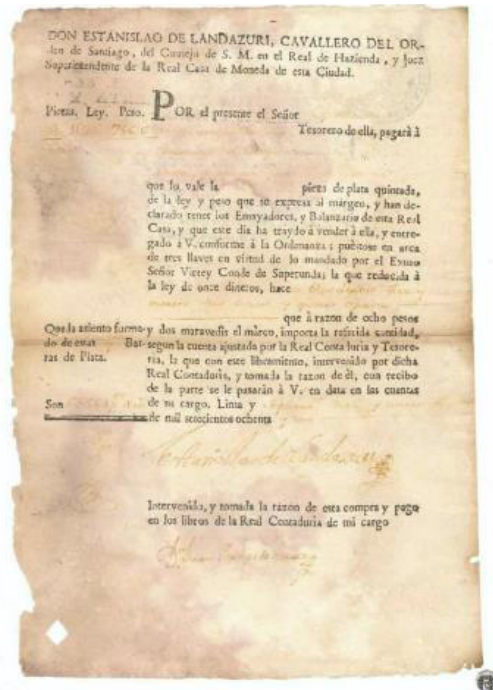 DON ESTANISLAO DE LANDAZURI, CAVALLERO DEL OR-
den de Santiago, del Consejo de S. M. en el Real de Hazienda, y Juez
Superintendente de la Real Casa de Moneda de esta Ciudad.
Piezas. Ley. Peso. POR el presente el Señor
Tesorero de ella, pagará à
que lo vale la pieza de plata quintada,
de la ley y peso que se expresa al margen, y han de-
clarado tener los Ensayadores, y Balanzario de esta Real
Casa, y que este dia ha traydo à vender à ella, y entre-
gado à V. conforme à la Ordenanza; pusose en arca
de tres llaves en virtud de lo mandado por el Exmo
Señor Virrey Conde de Superunda; la que reducida à
la ley de once dineros, hace
que à razon de ocho pesos
Queda asiento forma- y dos maravedis el marco, importa la referida cantidad,
do de estas Bar- segun la cuenta ajustada por la Real Contaduria y Tesore-
ras de Plata. ria, la que con este libramiento, intervenido por dicha
Real Contaduria, y tomada la razon de èl, con recibo
de la parte se le pasarán à V. en data en las cuentas
Son de su cargo. Lima y
de mil setecientos ochenta
Intervenido, y tomada la razon de esta compra y pago
en los libros de la Real Contaduria de mi cargo